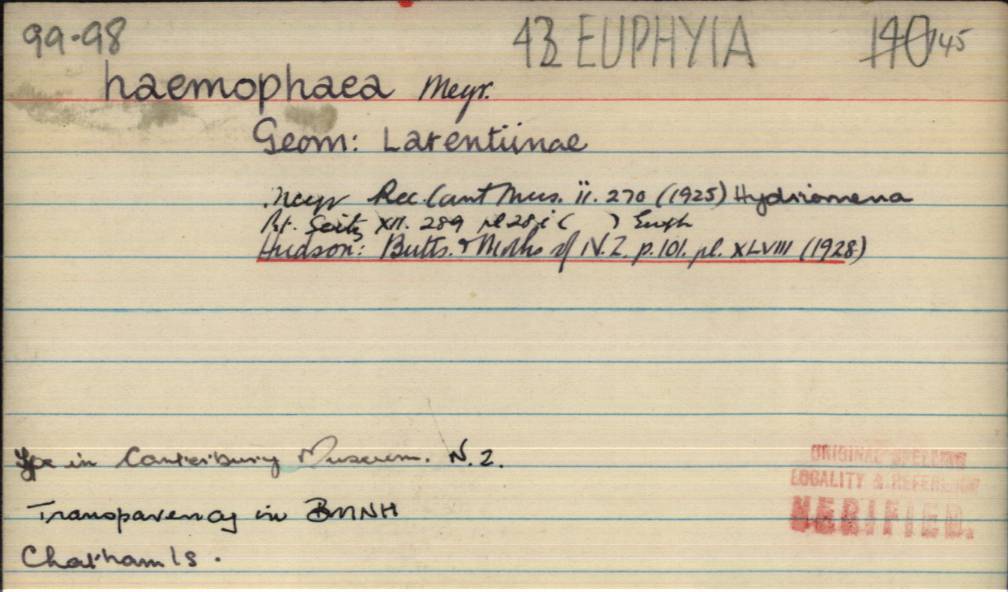 99-98 43 EUPHYIA 140 145
haemophaea Meyr.
Geom: Larentiinae
Meyr Rec. Cant Mus. ii. 270 (1925) Hydriomena
Pt. Seitz XII. 289 pl 28 i ( ) Euph
Hudson: Butts. & Moths of N.Z. p. 101. pl. XLVIII (1928)
Type in Canterbury Museum. N.Z.
Transparency in BMNH
Chatham Is.
ORIGINAL SPELLING
LOCALITY & REFERENCE
VERIFIED.